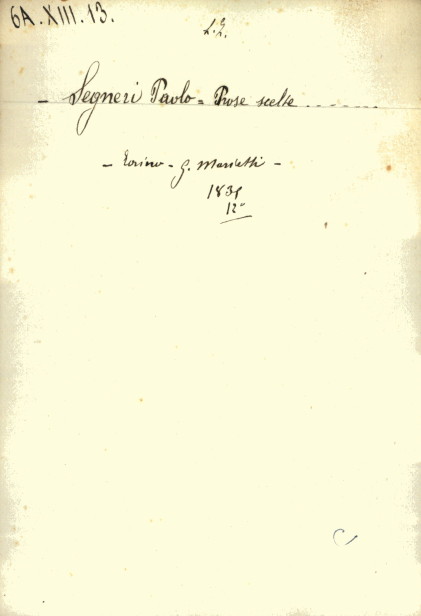 6A.XIII.13.
L.L.
- Segneri Paolo = Prose scelte ..........
- Torino - G. Marietti -
12°